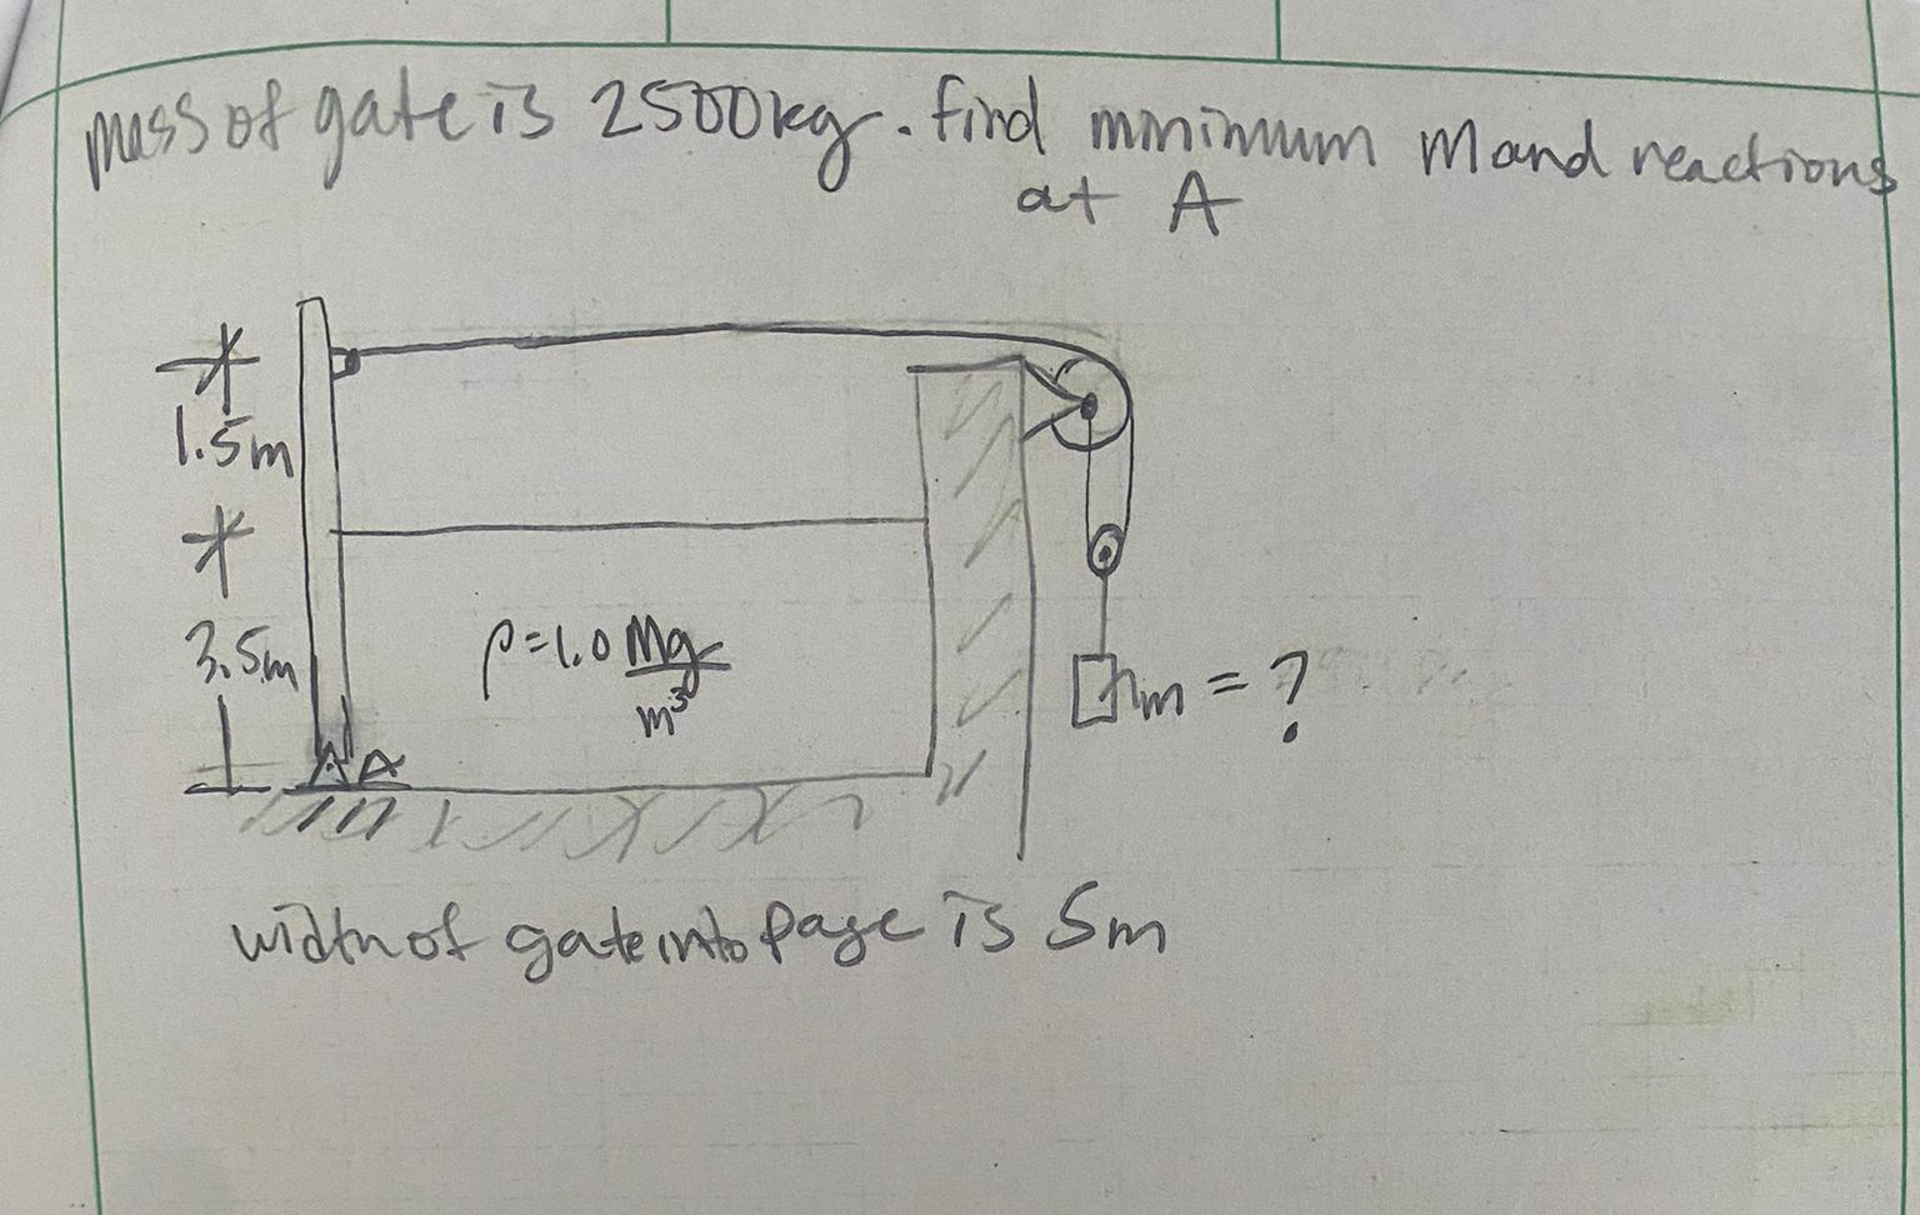 mass of gate is 2500kg. Find minimum M and reactions
at A
1.5m
3.5m
ρ=1.0 Mg/m³
m = ?
A A
width of gate into page is 5m